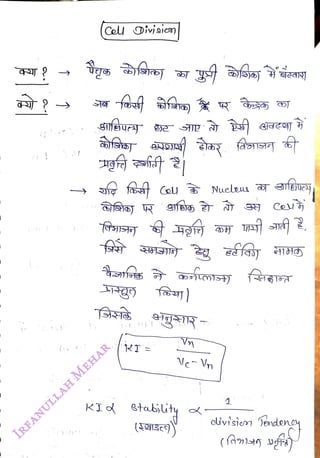 Cell Division
क्या ? → पैतृक कोशिका का पुत्री कोशिका में बंटवारा
क्यो ? → जब किसी कोशिका पर केन्द्रक का
आधिपत्य घट जाए तो ऐसी अवस्था में
कोशिका होकर विभाजन की
प्रवृत्ति दर्शाती है।
→ यदि किसी Cell के Nucleus का आधिपत्य
कोशिका पर अधिक हो तो उस Cell में
विभाजन की प्रवृत्ति कम पायी जाती है.
जिसे समझाने हेतु हर्टविग नामक
वैज्ञानिक ने सिद्धान्त
प्रस्तुत किया।
जिसके अनुसार -
KI = Vn / Vc - Vn
KI α stability α 1 / division Tendency
(स्थाइत्व) (विभाजन प्रवृत्ति)
IRFANULLAH MEHAR